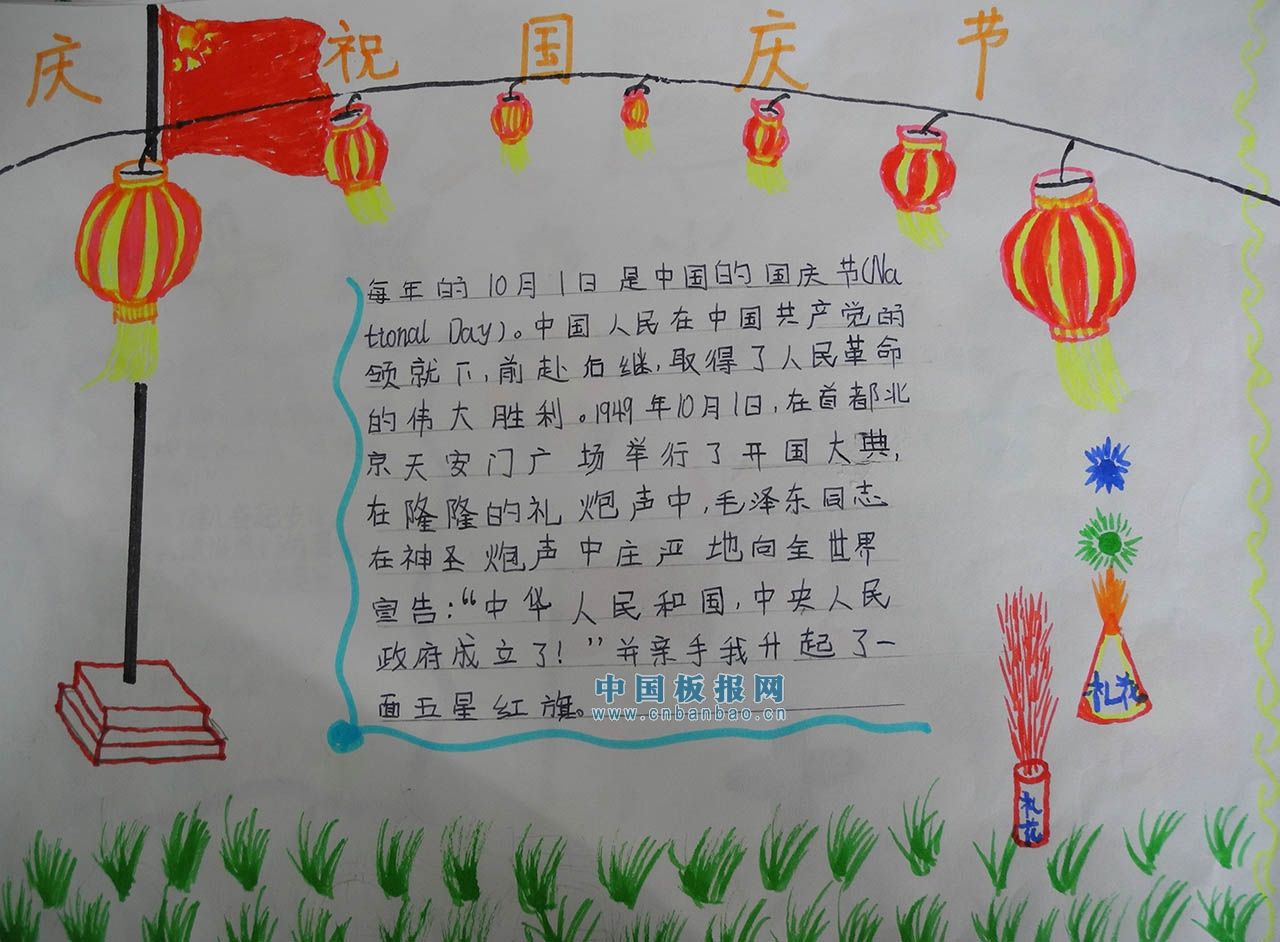 庆祝国庆节
每年的10月1日是中国的国庆节(Na
tional Day)。中国人民在中国共产党的
领就下,前赴后继,取得了人民革命
的伟大胜利。1949年10月1日,在首都北
京天安门广场举行了开国大典,
在隆隆的礼炮声中,毛泽东同志
在神圣炮声中庄严地向全世界
宣告:“中华人民和国,中央人民
政府成立了!”并亲手我升起了一
面五星红旗。
中国板报网
www.cnbanbao.cn
礼花
礼花